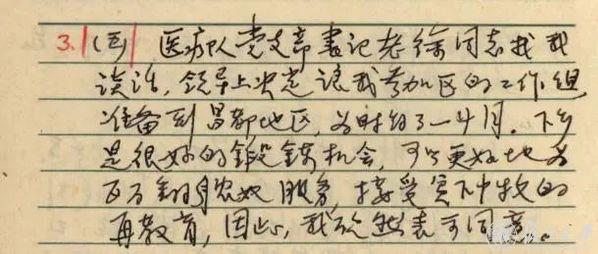 3. (五) 医疗队党支部书记老徐同志找我
谈话，领导上决定让我参加区的工作组
准备到昌都地区，为时约一个月。下乡
是很好的锻炼机会，可以更好地为
百万翻身农奴服务，接受贫下中牧的
再教育，因此，我欣然表示同意。